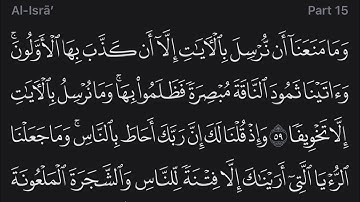 Al-Isrā’ Part 15
وَمَا مَنَعَنَآ أَن نُّرْسِلَ بِٱلْءَايَٰتِ إِلَّآ أَن كَذَّبَ بِهَا ٱلْأَوَّلُونَ ۚ
وَءَاتَيْنَا ثَمُودَ ٱلنَّاقَةَ مُبْصِرَةً فَظَلَمُوا۟ بِهَا ۚ وَمَا نُرْسِلُ بِٱلْءَايَٰتِ
إِلَّا تَخْوِيفًا ٥٩ وَإِذْ قُلْنَا لَكَ إِنَّ رَبَّكَ أَحَاطَ بِٱلنَّاسِ ۚ وَمَا جَعَلْنَا
ٱلرُّءْيَا ٱلَّتِىٓ أَرَيْنَٰكَ إِلَّا فِتْنَةً لِّلنَّاسِ وَٱلشَّجَرَةَ ٱلْمَلْعُونَةَ